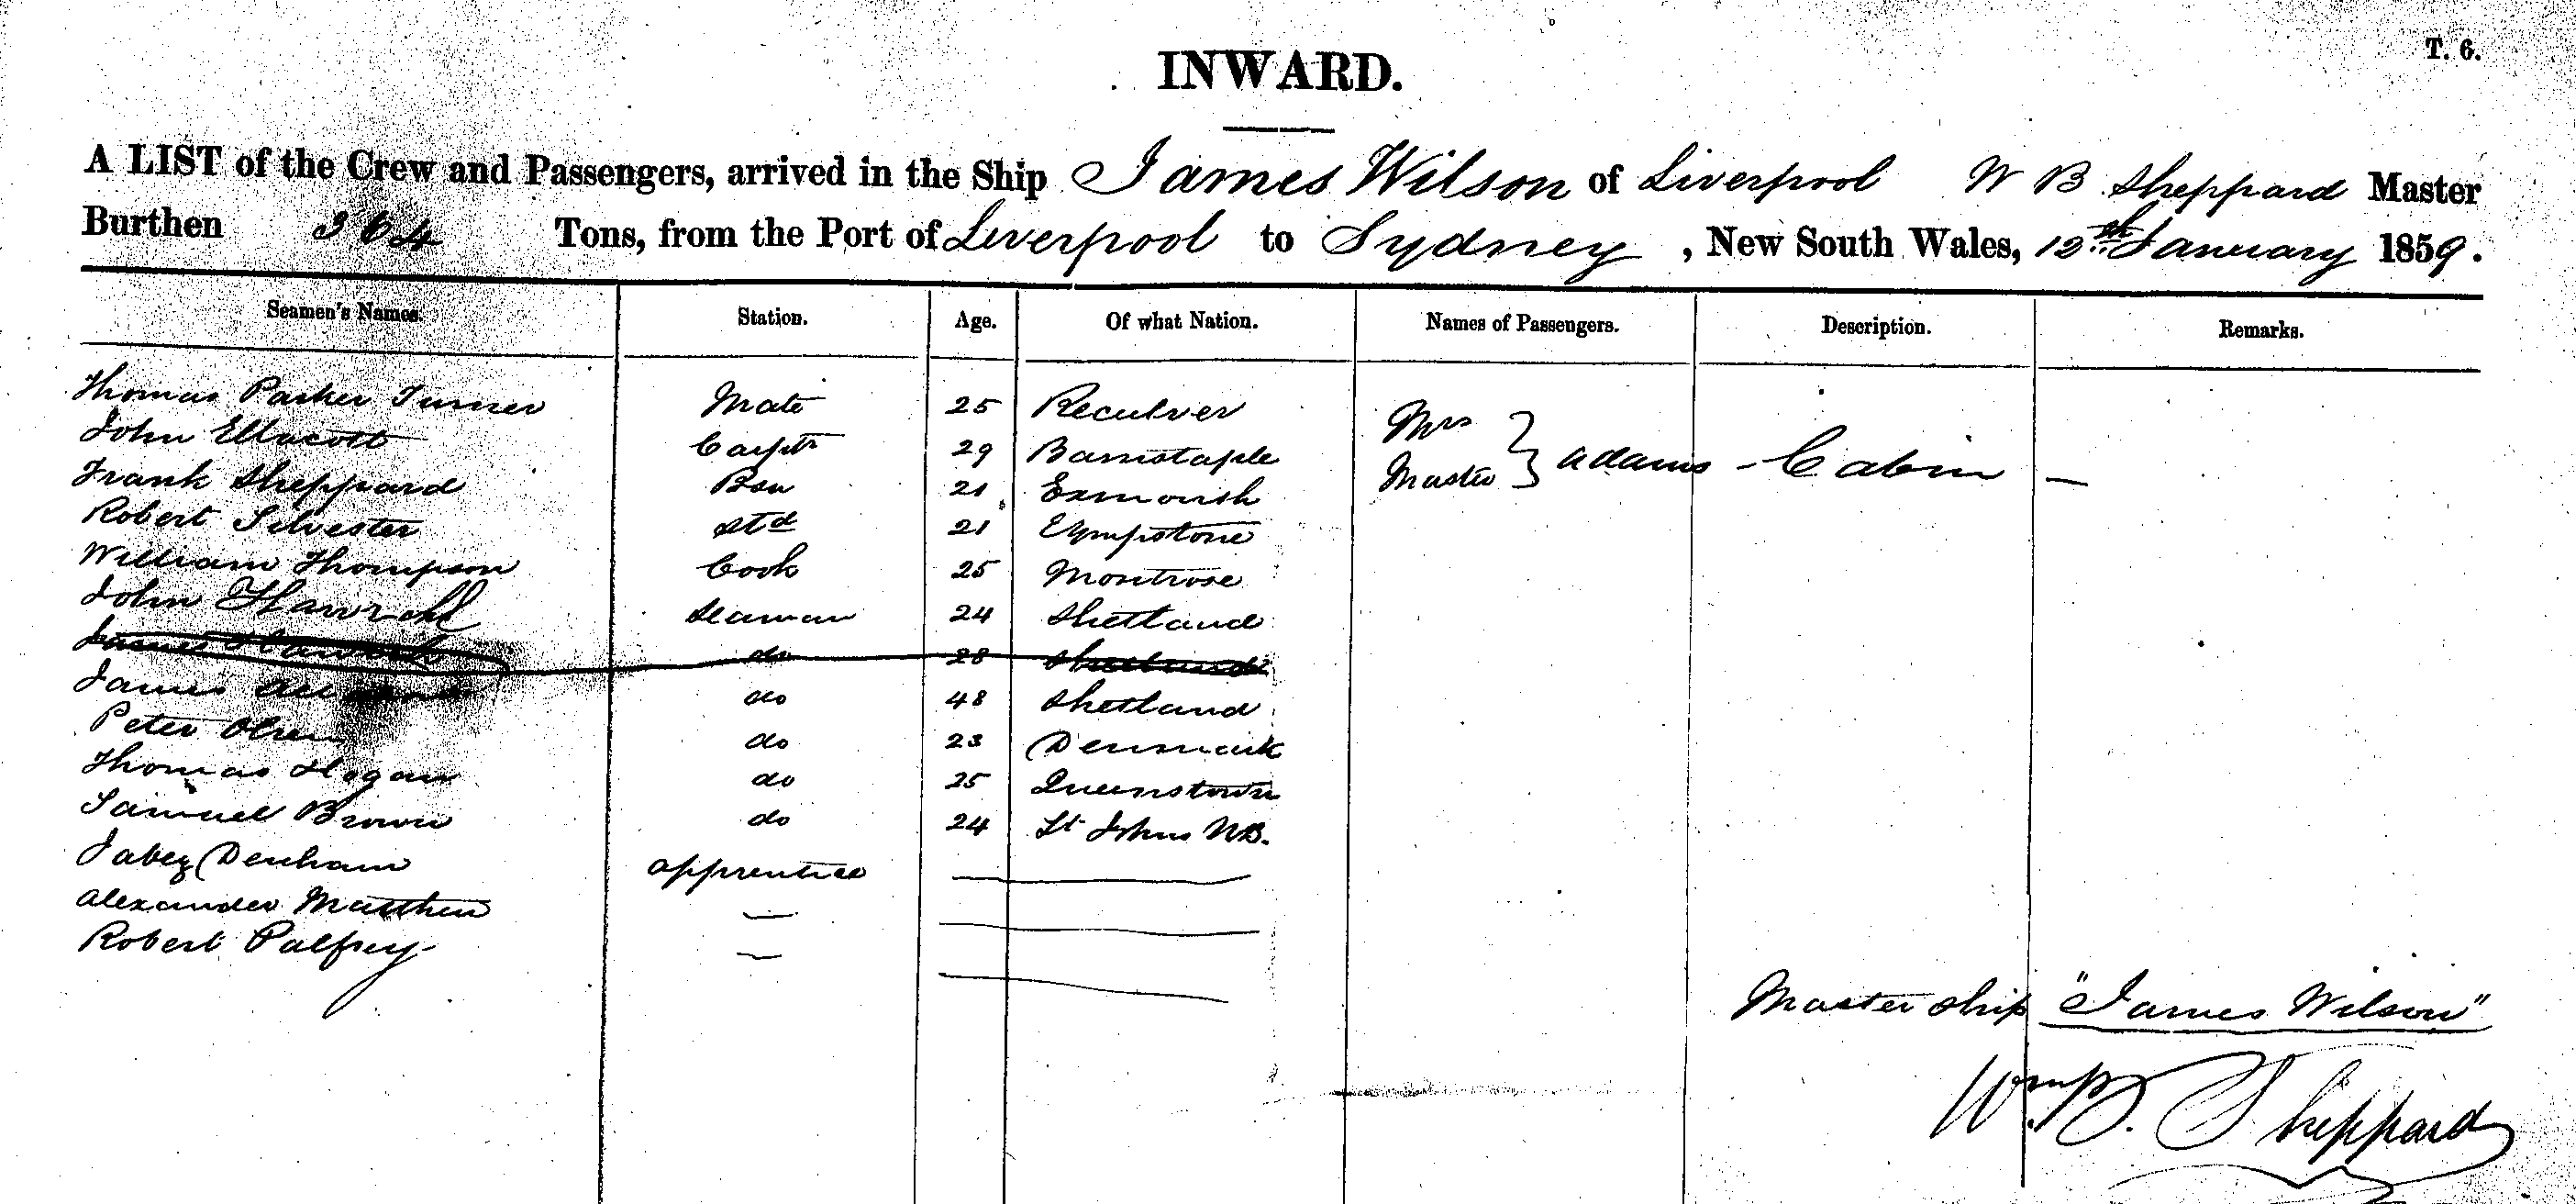 T. 6.
INWARD.
A LIST of the Crew and Passengers, arrived in the Ship James Wilson of Liverpool W B Sheppard Master
Burthen 364 Tons, from the Port of Liverpool to Sydney, New South Wales, 12th January 1859.
Seamen's Names. Station. Age. Of what Nation. Names of Passengers. Description. Remarks.
Thomas Parker Turner Mate 25 Reculver
John Ellacott Carptr 29 Barnstaple Mrs Master } Adams - Cabin —
Frank Sheppard Bsn 21 Exmouth
Robert Silvester Std 21 Lympstone
William Thompson Cook 25 Montrose
John Seaman 24 Shetland
James do 28 Shetland
James do 48 Shetland
Peter Olsen do 23 Denmark
Thomas Hogan do 25 Queenstown
Samuel Brown do 24 St Johns NB.
Jabez Denham apprentice —
Alexander Matthew — —
Robert Palfrey — —
Master Ship "James Wilson"
Wm B. Sheppard